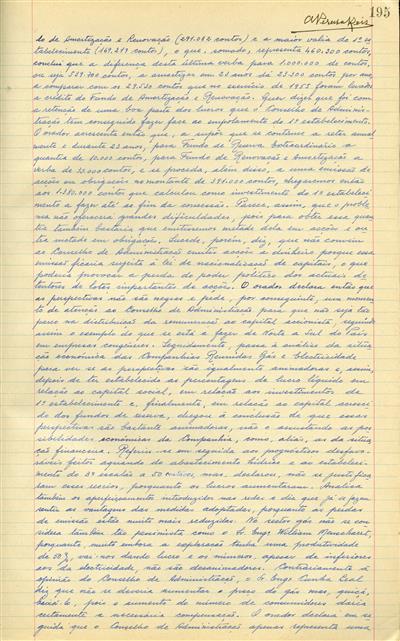 195
do de Amortização e Renovação (291.082 contos) e a maior valia do 1º es
tabelecimento (169.218 contos), o que, somado, representa 460.300 contos,
conclue que a diferença desta última verba para 1.000.000 de contos,
ou seja 539.700 contos, a amortizar em 21 anos de 25.700 contos por ano,
a comparar com os 29.530 contos que no exercício de 1955 foram levados
a crédito do Fundo de Amortização e Renovação. Quer dizer que foi com
a retenção de uma boa parte dos lucros que o Conselho de Adminis-
tração tem conseguido fazer face ao empolamento do 1º estabelecimento.
O orador acrescenta então que, a supôr que se continue a reter anual
mente e durante 23 anos, para Fundo de Reserva Extraordinário a
quantia de 10.000 contos, para Fundo de Renovação e Amortização a
verba de 25.000 contos, e se proceda, além disso, a uma emissão de
acções ou obrigações no montante de 391.000 contos, chegaremos então
aos 1.250.000 contos que calculou como investimento do 1º estabeleci-
mento a fazer até ao fim da concessão. Parece, assim, que o proble
ma não ofereceria grandes dificuldades, pois para obter essa quan
tia também bastaria que emitissemos metade dela em acções e ou
tra metade em obrigações. Sucede, porém, diz, que não convém
ao Conselho de Administração emitir acções a dinheiro porque essa
emissão ficaria sujeita à lei da nacionalização de capitais, o que
poderia provocar a perda do poder político dos actuais de
tentores de lotes importantes de acções. O orador declara então que
as perspectivas não são negras e pede, por conseguinte, um momen
to de atenção ao Conselho de Administração para que não seja tão
parco na distribuição da remuneração ao capital accionista, seguindo
assim o exemplo do que se está a fazer de Norte a Sul do País
em empresas congéneres. Seguidamente, passa à análise da situa
ção económica das Companhias Reunidas Gás e Electricidade
para ver se as perspectivas são igualmente animadoras e, assim,
depois de ter estabelecido as percentagens do lucro líquido em
relação ao capital social, em relação aos investimentos do
1º estabelecimento e, finalmente, em relação ao capital acresci-
do dos fundos de reserva, chegou à conclusão de que essas
perspectivas são bastante animadoras, não o assustando as pos
sibilidades económicas da Companhia, como, aliás, as da situa
ção financeira. Referiu-se em seguida aos prognósticos desfavo-
ráveis feitos aquando do abastecimento hídrico e ao estabeleci-
mento do 3º escalão a 50 centavos, mas, declarou, não se justifica
ram esses receios, porquanto os lucros aumentaram. Analisa
também os aperfeiçoamentos introduzidos nas redes e diz que já se fazem
sentir as vantagens das medidas adoptadas, porquanto as perdas
de emissão estão muito mais reduzidas. No restos gás não se con
sidera também tão pessimista como o Sr. Engº William
porquanto, muito embora a exploração tenha uma produtividade
de 50%, vai-nos dando lucro e os números, apesar de inferiores
aos da electricidade, não são desanimadores. Contrariamente à
opinião do Conselho de Administração, o Sr. Engº Cunha Leal
diz que não se deveria aumentar o preço do gás mas, quiçá,
baixá-lo, pois o aumento do número de consumidores daria
certamente a necessária compensação. O orador declara em se
guida que o Conselho de Administração apenas representa uma